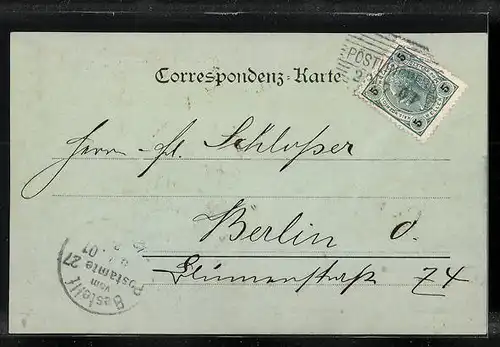 Correspondenz-Karte
5 5
5 5
POST
07
Herrn Schlosser
Berlin O.
Blumenstraße 74
Bestellt
vom
Postamte 27
01